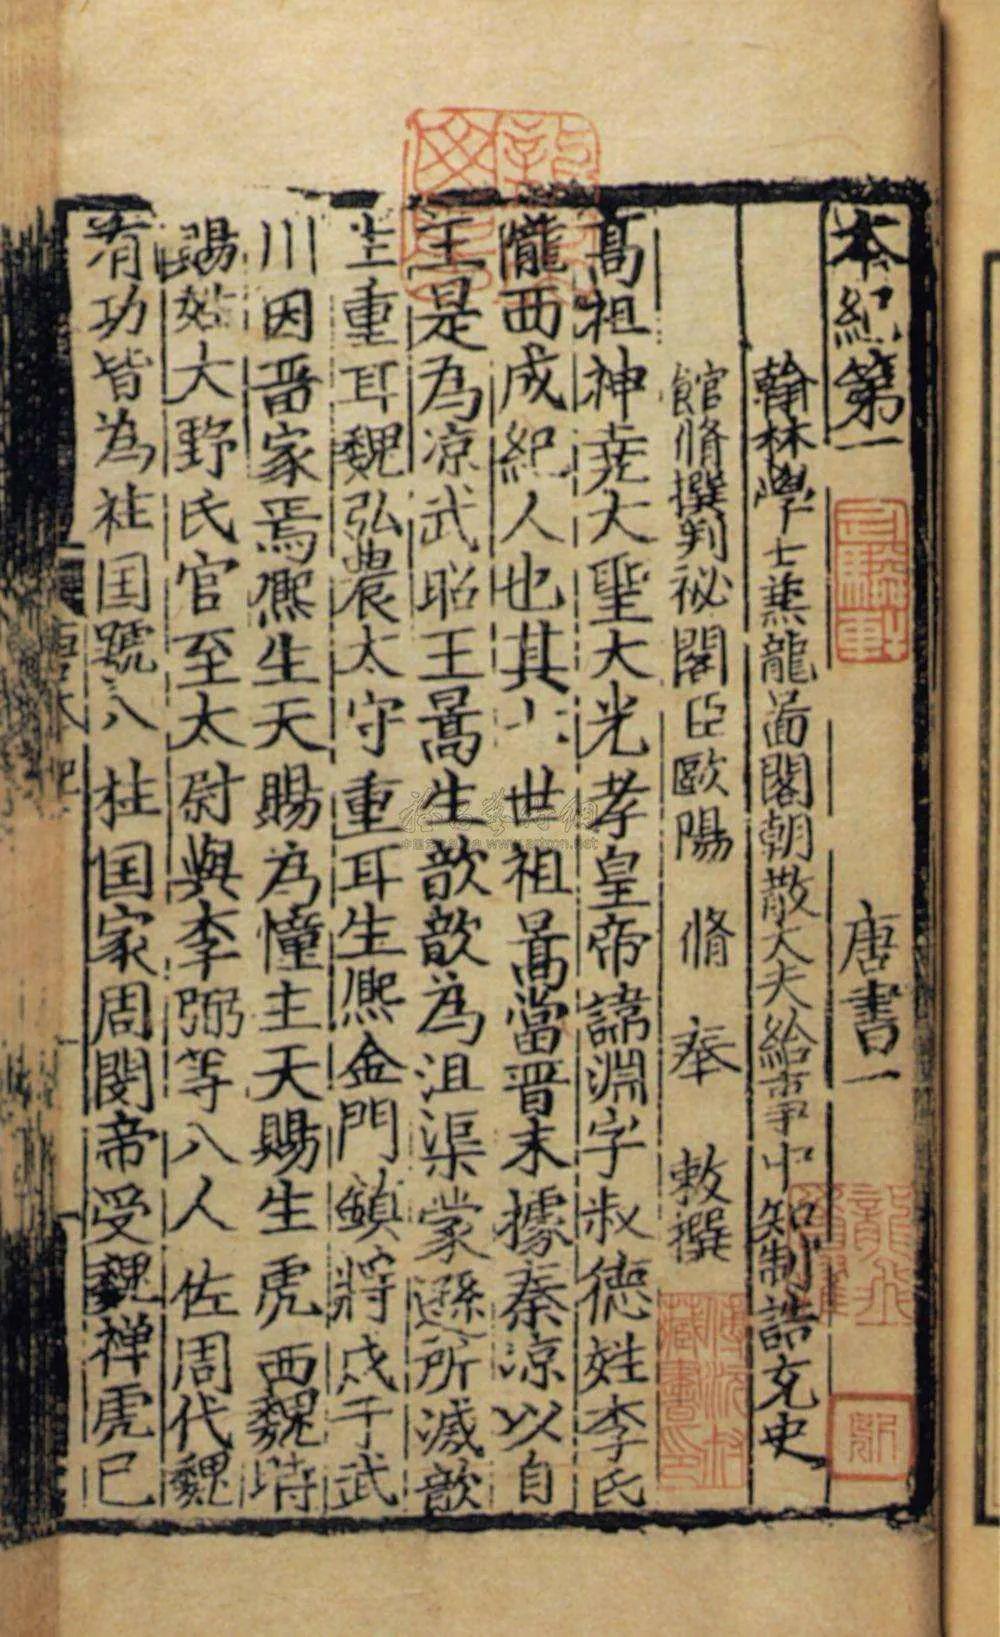 本紀第一 唐書一
翰林學士兼龍啚閣朝散大夫給事中知制誥充史
館脩撰判祕閣臣歐陽 脩 奉 敕撰
髙祖神堯大聖大光孝皇帝諱淵字叔德姓李氏
隴西成紀人也其七世祖暠當晉末據秦涼以自
王是為凉武昭王暠生歆歆為沮渠蒙遜所滅歆
生重耳魏弘農太守重耳生熈金門鎮將戍于武
川因晋家焉熈生天賜為憧主天賜生虎西魏時
賜姓大野氏官至太尉與李弼等八人佐周代魏
有功皆為柱囯號八柱囯家周閔帝受魏禅虎已